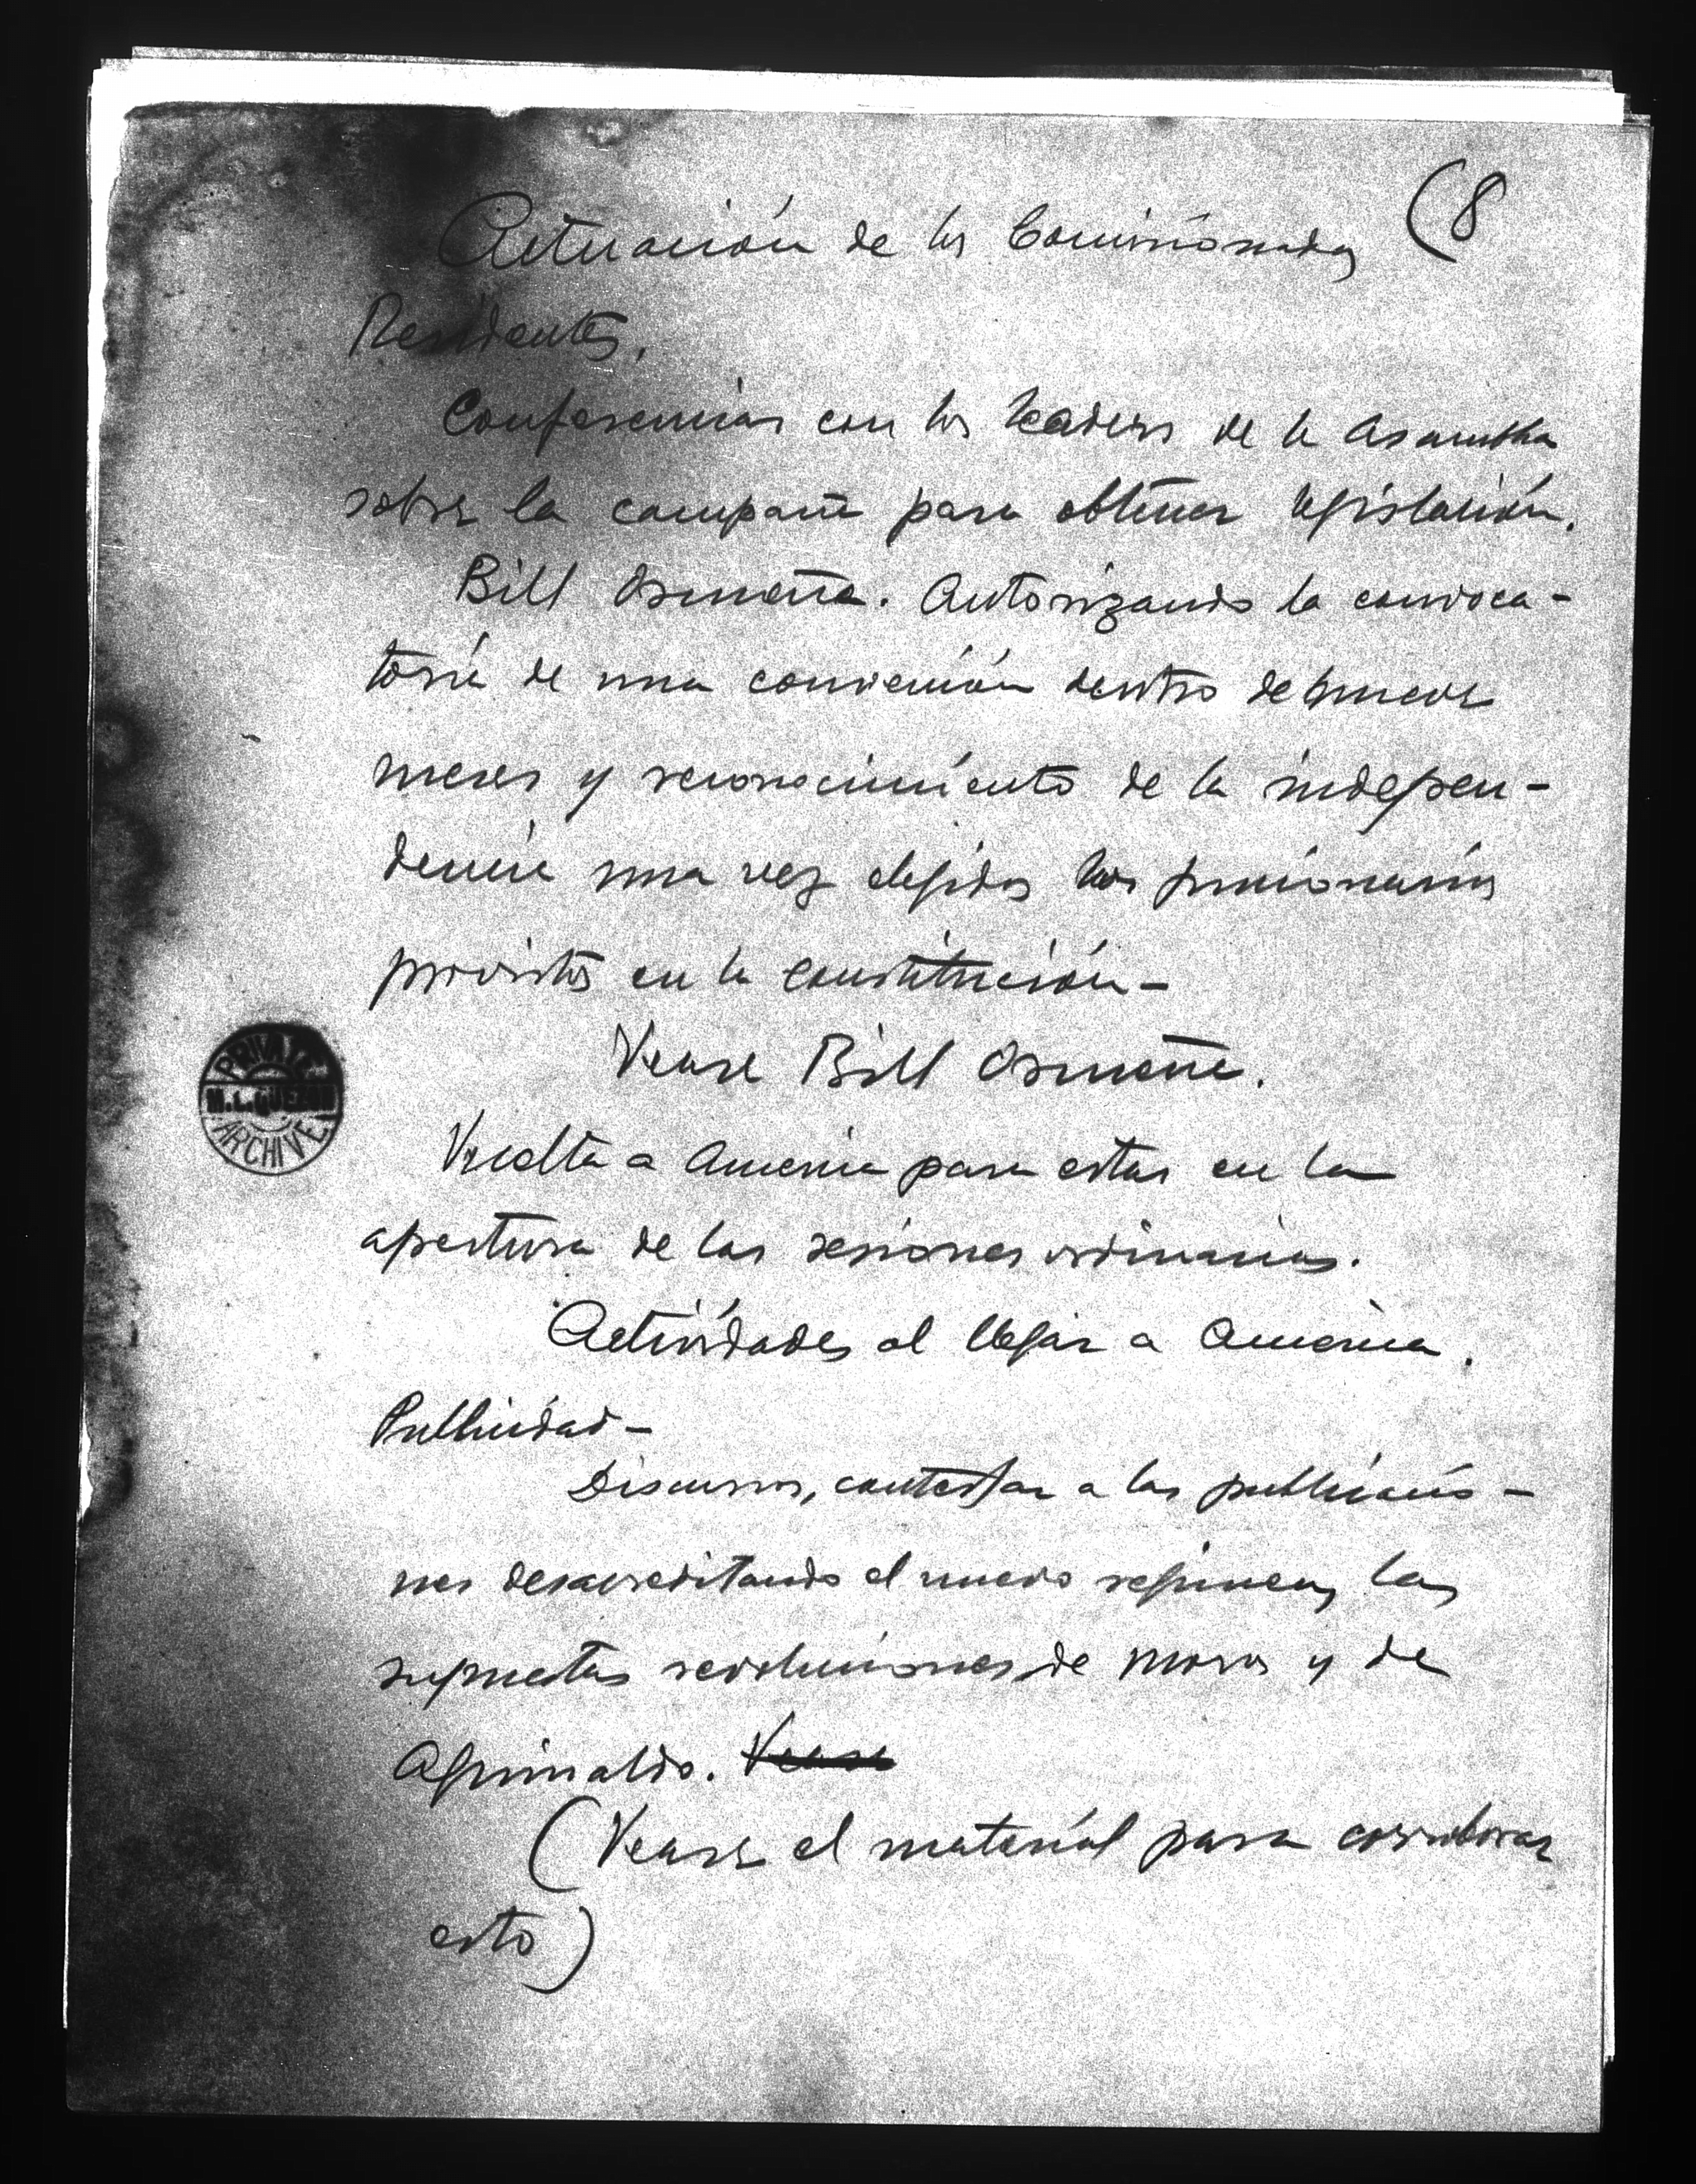 (8
Actuación de los Comisionados
Residentes.
Conferencias con los leaders de la Asamblea
sobre la campaña para obtener legislación.
Bill Osmeña. Autorizando la convoca-
toria de una convención dentro de
meses y reconocimiento de la indepen-
dencia una vez elegidos los funcionarios
provistos en la Constitución-
Vease Bill Osmeña.
Vuelta a America para estar en la
apertura de las sesiones ordinarias.
Actividades al llegar a America.
Publicidad-
Discursos, contestar a las publicacio-
nes desacreditando el nuevo regimen, las
supuestas revoluciones de moros y de
Aguinaldo. Vease
(Vease el material para corroborar
esto)
PRIVATE
M.L. QUEZON
ARCHIVE